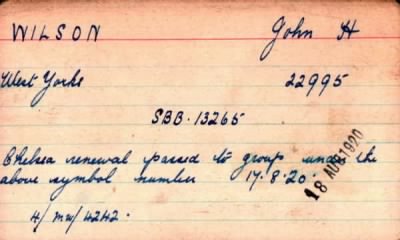 WILSON John H
West Yorks 22995
SBB. 13265
Chelsea renewal passed to group under the
above symbol number 17.8.20.
18 AUG 1920
4/mw/4242.